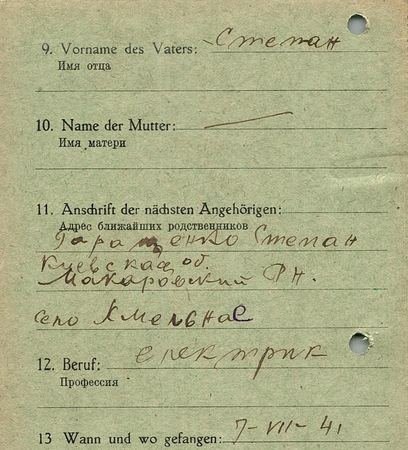 9. Vorname des Vaters: Степан
Имя отца
10. Name der Mutter: —
Имя матери
11. Anschrift der nächsten Angehörigen:
Адрес ближайших родственников
Гаращенко Степан
Киевская об.
Макаровский РН.
село Хмельнае
12. Beruf: електрик
Профессия
13 Wann und wo gefangen: 7-VII-41